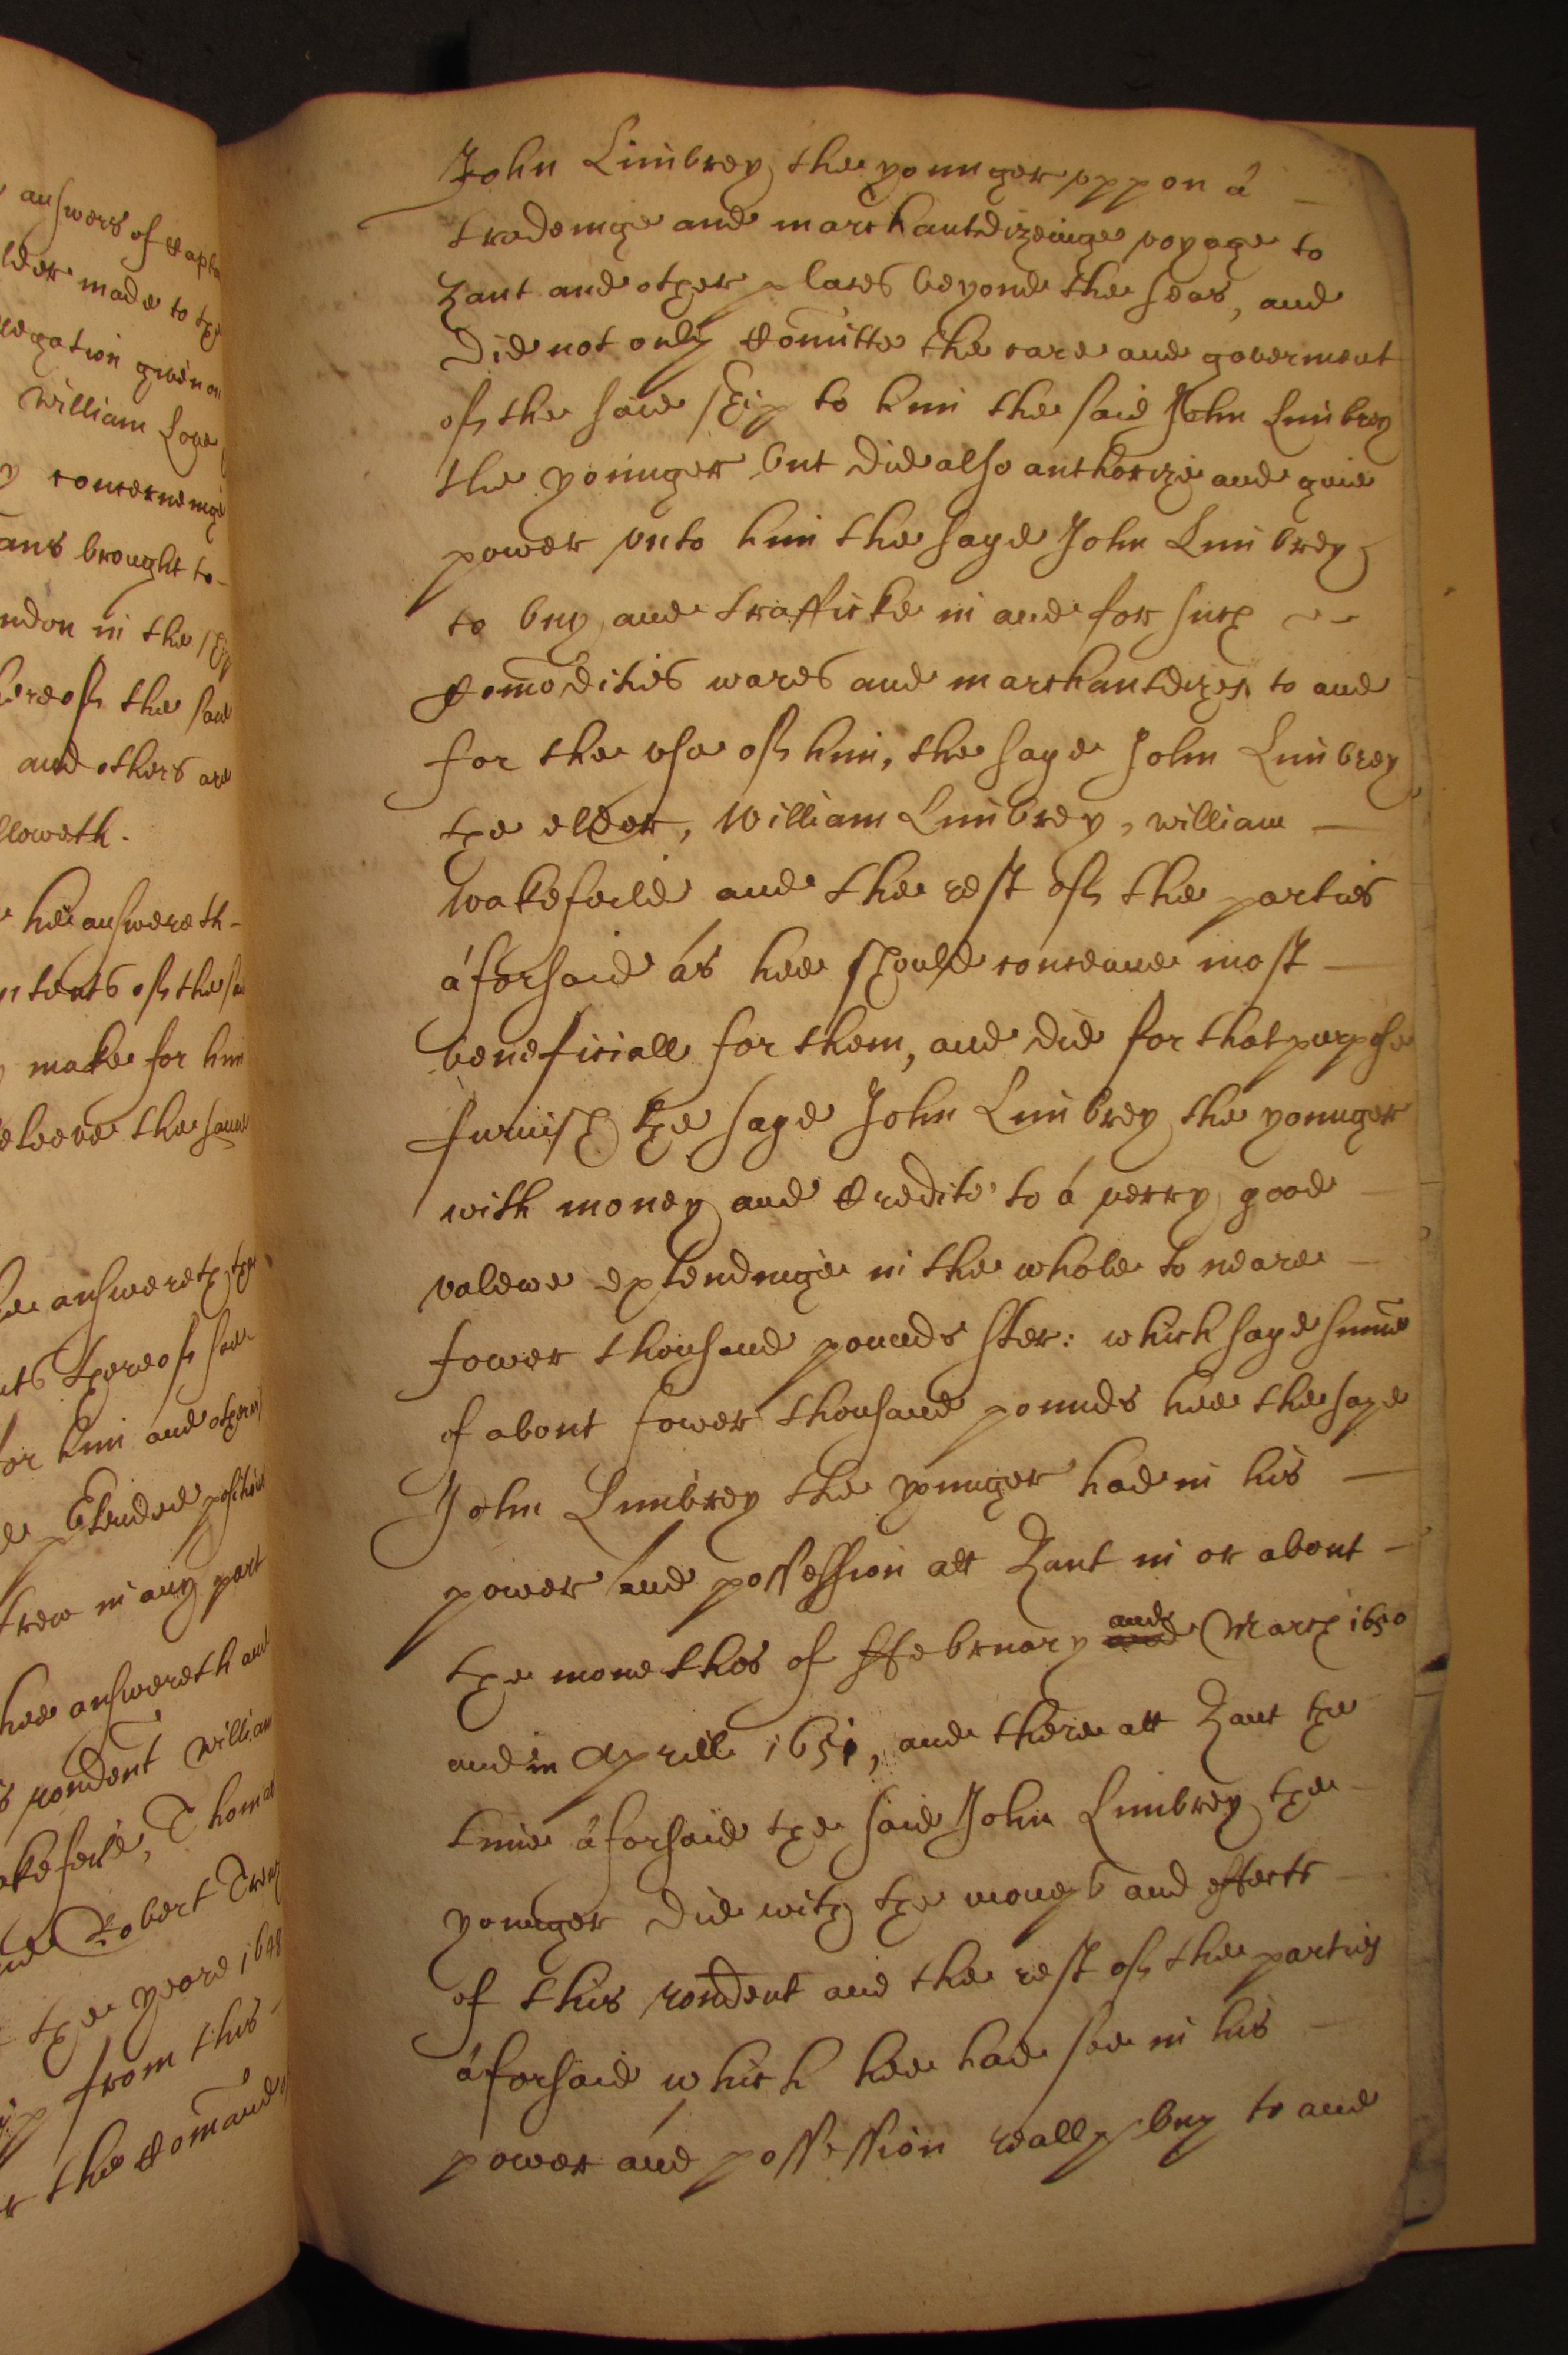 answers of Capt
lder made to the
legation given on
William Love
y concerneinge
ans brought to
ndon in the ship
hereof the said
and others are
lloweth.
hee answereth
ntents of the sa
make for him
beleeve the same
hee answereth the
nts thereof save
for him and others
trew in any part
hee answereth and
rondent William
akefeild, Thomas
and Robert Swea
the yeare 1648
ip from this
r the Comand
John Limbrey the younger uppon á
tradeinge and marchantdizeinge voyage to
Zant and other places beyond the seas, and
did not only Comitte the care and goverment
of the said ship to him the said John Limbrey
the younger but did also authorize and give
power unto him the sayd John Limbrey
to buy and trafficke in and for such
Comodities wares and marchantdizes to and
for the use of him, the sayd John Limbrey
the elder, William Limbrey, william
Wakefeild and the rest of the parties
áforsaid ás hee should conceave most
beneficiall for them, and did for that purpose
furnish the sayd John Limbrey the younger
with money and Credite to á verry good
valewe extendinge in the whole to neare
fower thousand pounds ster: which sayd summe
of about fower thousand pounds hee the sayd
John Limbrey the younger had in his
power and possession att Zant in or about
the monethes of ffebruary and March 1650
and in Aprill 1651, and there att Zant the
time áforsaid the said John Limbrey the
younger did with the moneys and effects
of this rondent and the rest of the parties
áforsaid which hee had soe in his
power and possession really buy to and